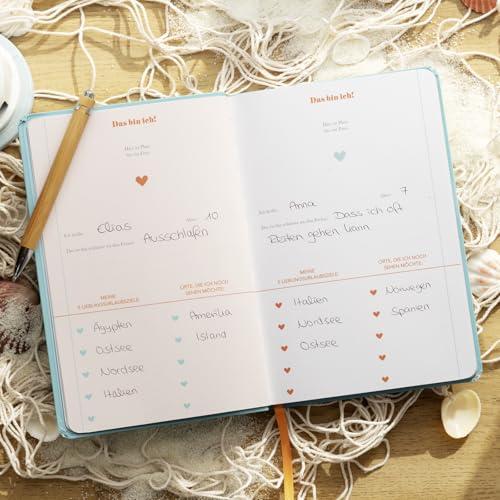 Das bin ich!
Hier ist Platz
für ein Foto.
Ich heiße: Elias Alter: 10
Das ist das schönste an den Ferien: Ausschlafen
MEINE
5 LIEBLINGSURLAUBSZIELE:
Ägypten
Ostsee
Nordsee
Italien
ORTE, DIE ICH NOCH
SEHEN MÖCHTE:
Amerika
Island
Das bin ich!
Hier ist Platz
für ein Foto.
Ich heiße: Anna Alter: 7
Das ist das schönste an den Ferien: Dass ich oft
Baden gehen kann
MEINE
5 LIEBLINGSURLAUBSZIELE:
Italien
Nordsee
Ostsee
ORTE, DIE ICH NOCH
SEHEN MÖCHTE:
Norwegen
Spanien